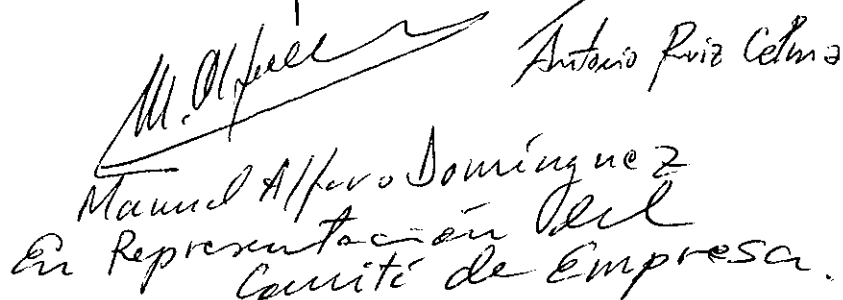 Antonio Ruiz Celma
M. Alfaro
Manuel Alfaro Domínguez
En Representación del
Comité de Empresa.